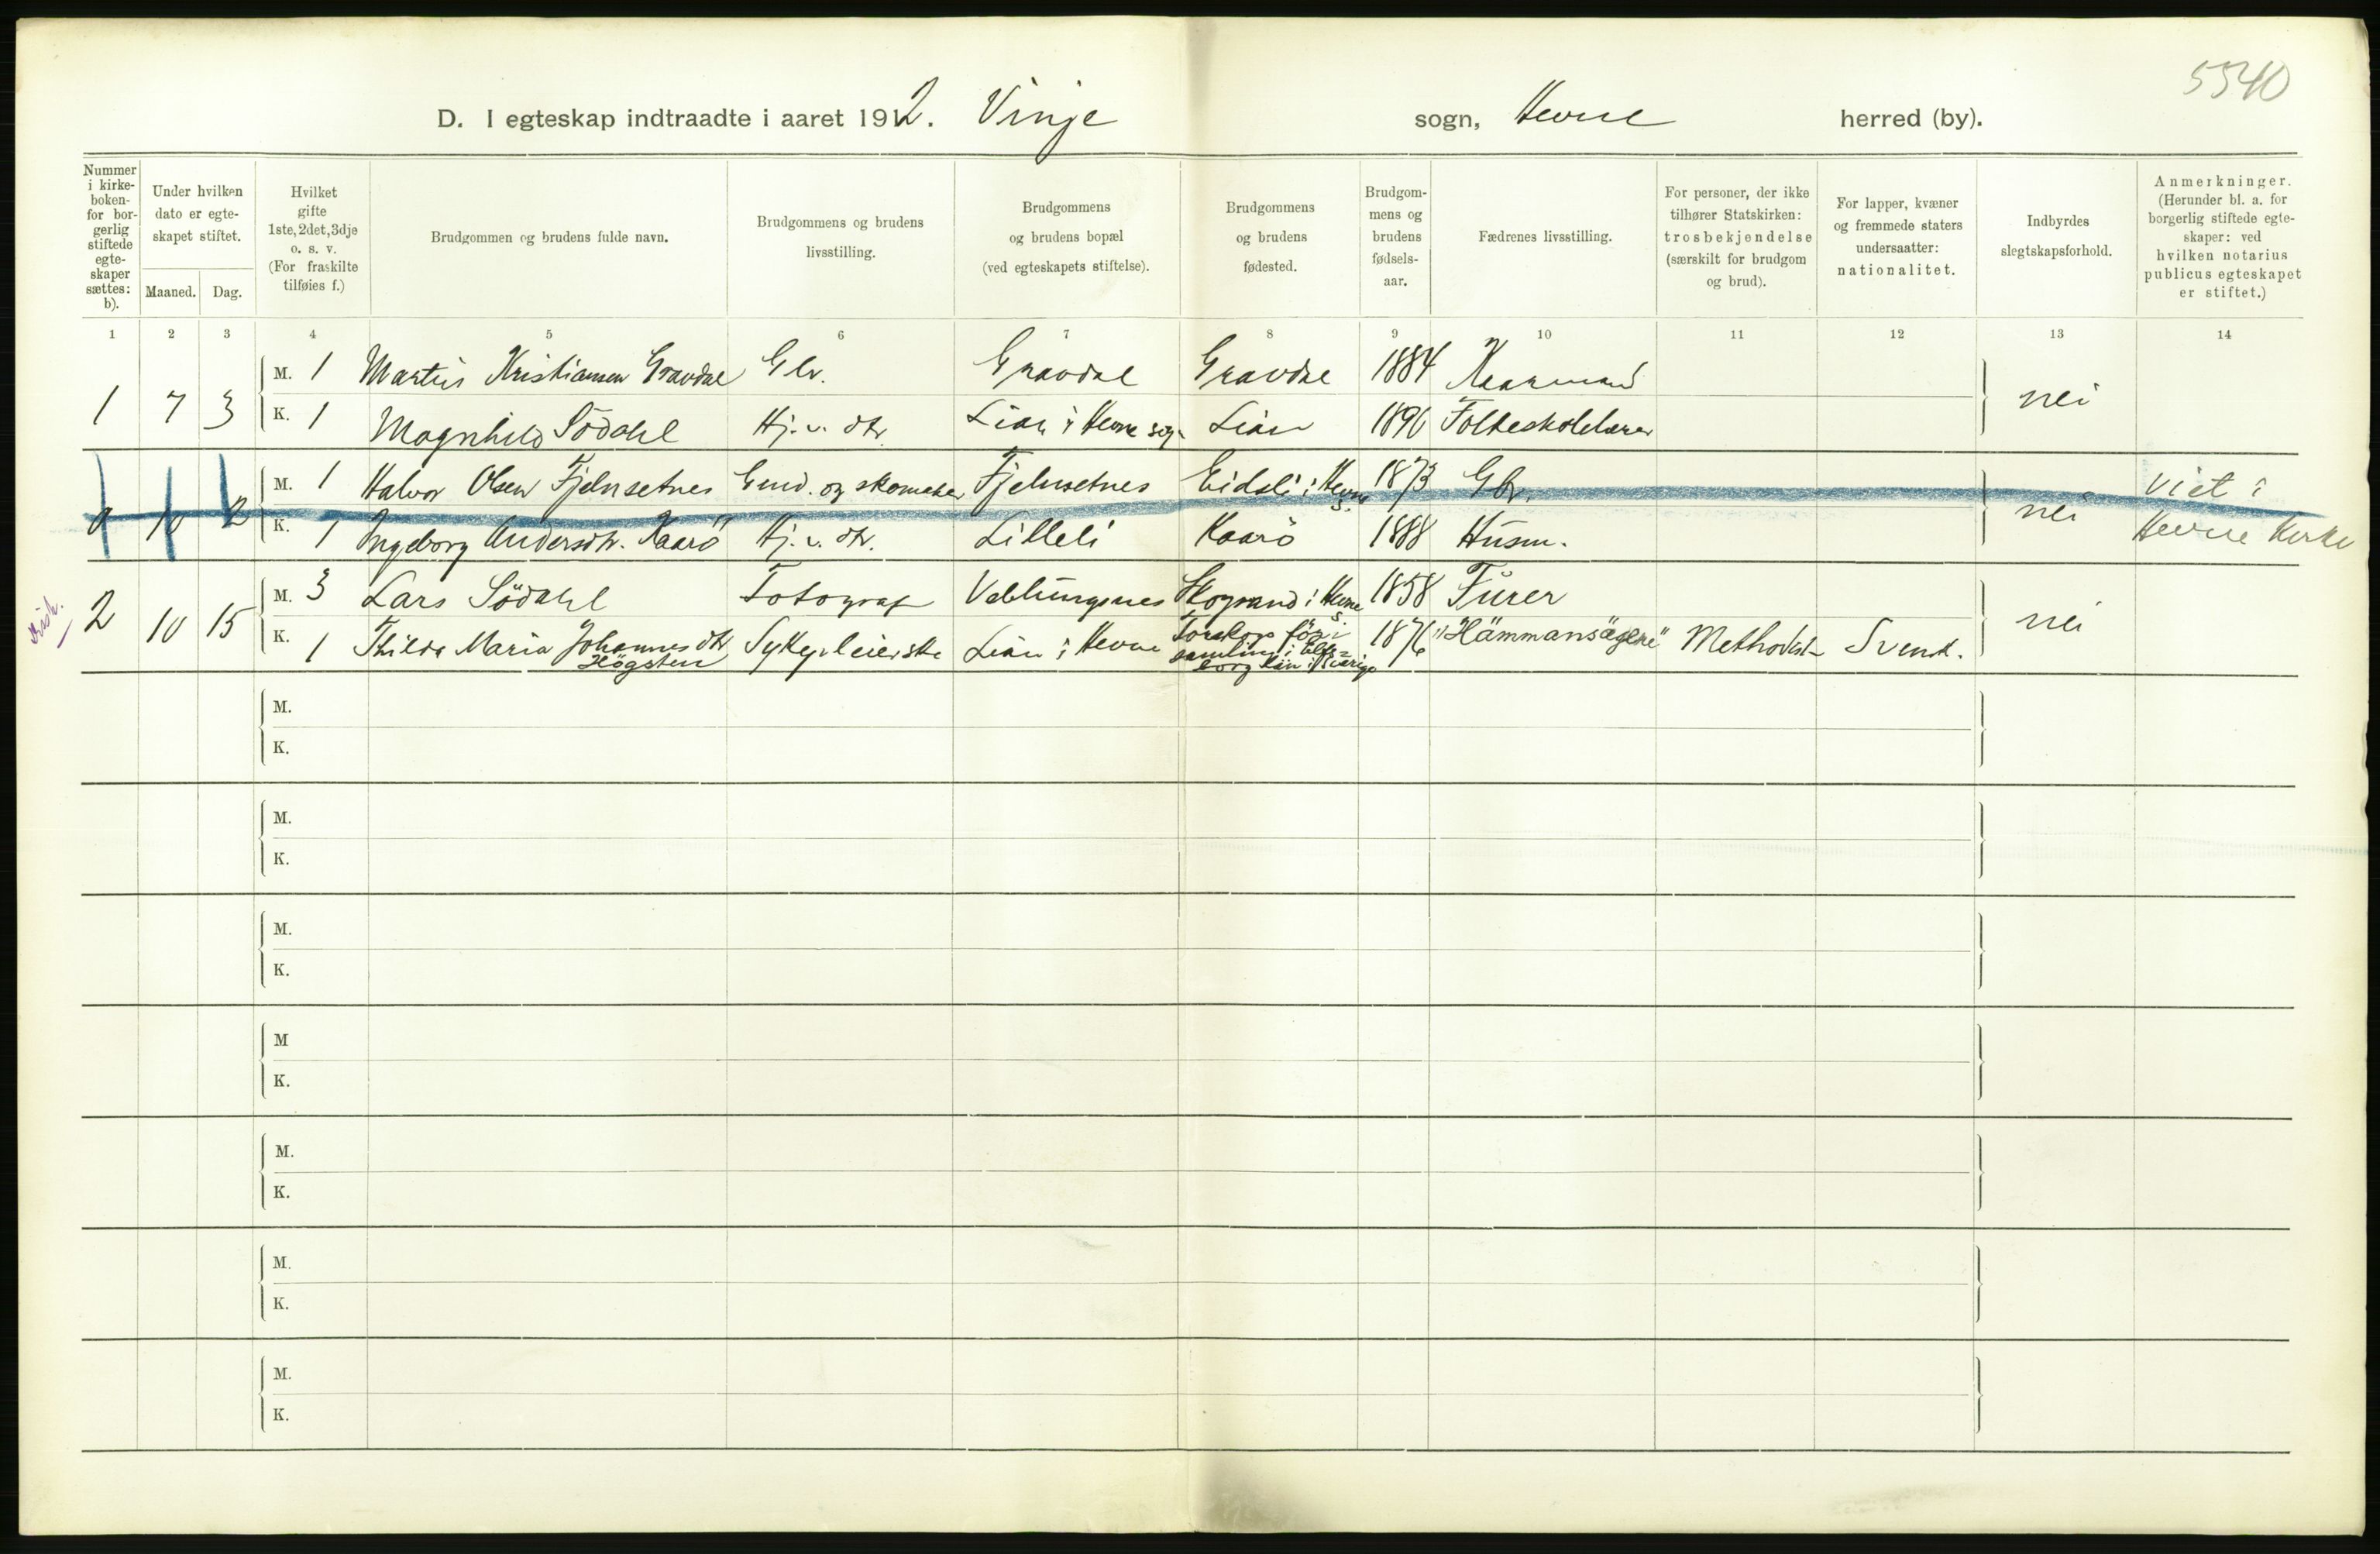 5540
D. I egteskap indtraadte i aaret 1912. Vinje sogn, Hevne herred (by).
Nummer i kirke-boken- for bor-gerlig stiftede egte-skaper sættes: b).
Under hvilken dato er egte-skapet stiftet.
Maaned. Dag.
Hvilket gifte 1ste, 2det, 3dje o. s. v. (For fraskilte tilføies f.)
Brudgommen og brudens fulde navn.
Brudgommens og brudens livsstilling.
Brudgommens og brudens bopæl (ved egteskapets stiftelse).
Brudgommens og brudens fødested.
Brudgom-mens og brudens fødsels-aar.
Fædrenes livsstilling.
For personer, der ikke tilhører Statskirken: trosbekjendelse (særskilt for brudgom og brud).
For lapper, kvæner og fremmede staters undersaatter: nationalitet.
Indbyrdes slegtskapsforhold.
Anmerkninger. (Herunder bl. a. for borgerlig stiftede egte-skaper: ved hvilken notarius publicus egteskapet er stiftet.)
1 2 3 4 5 6 7 8 9 10 11 12 13 14
M. 1 Martin Kristiansen Gravdal Gbr. Gravdal Gravdal 1884 Kaarmand
1 7 3 nei
K. 1 Magnhild Södahl Hj. v. dtr. Lian i Hevne sogn Lian 1890 Folkeskolelærer
M. 1 Halvor Olsen Fjelnsetnes Gmd. og skomaker Fjelnsetnes Eidsli i Hevne s. 1873 Gbr. viet i
10 2 nei
K. 1 Ingeborg Andersdtr. Kaarö Hj. v. dtr. Lilleli Kaarö 1888 Husm. Hevne Kirke
M. 3 Lars Södahl Fotograf Veblungsnes Skogrand i Hevne s. 1858 Furer
2 10 15 nei
K. 1 Thilda Maria Johannesdtr Högsten Sykepleierske Lian i Hevne Torskogs för-samling i Elfs-borg län i Sverige 1876 "Hämmansägere" Methodist Svensk.
M.
K.
M.
K.
M.
K.
M
K.
M.
K.
M.
K.
M.
K.